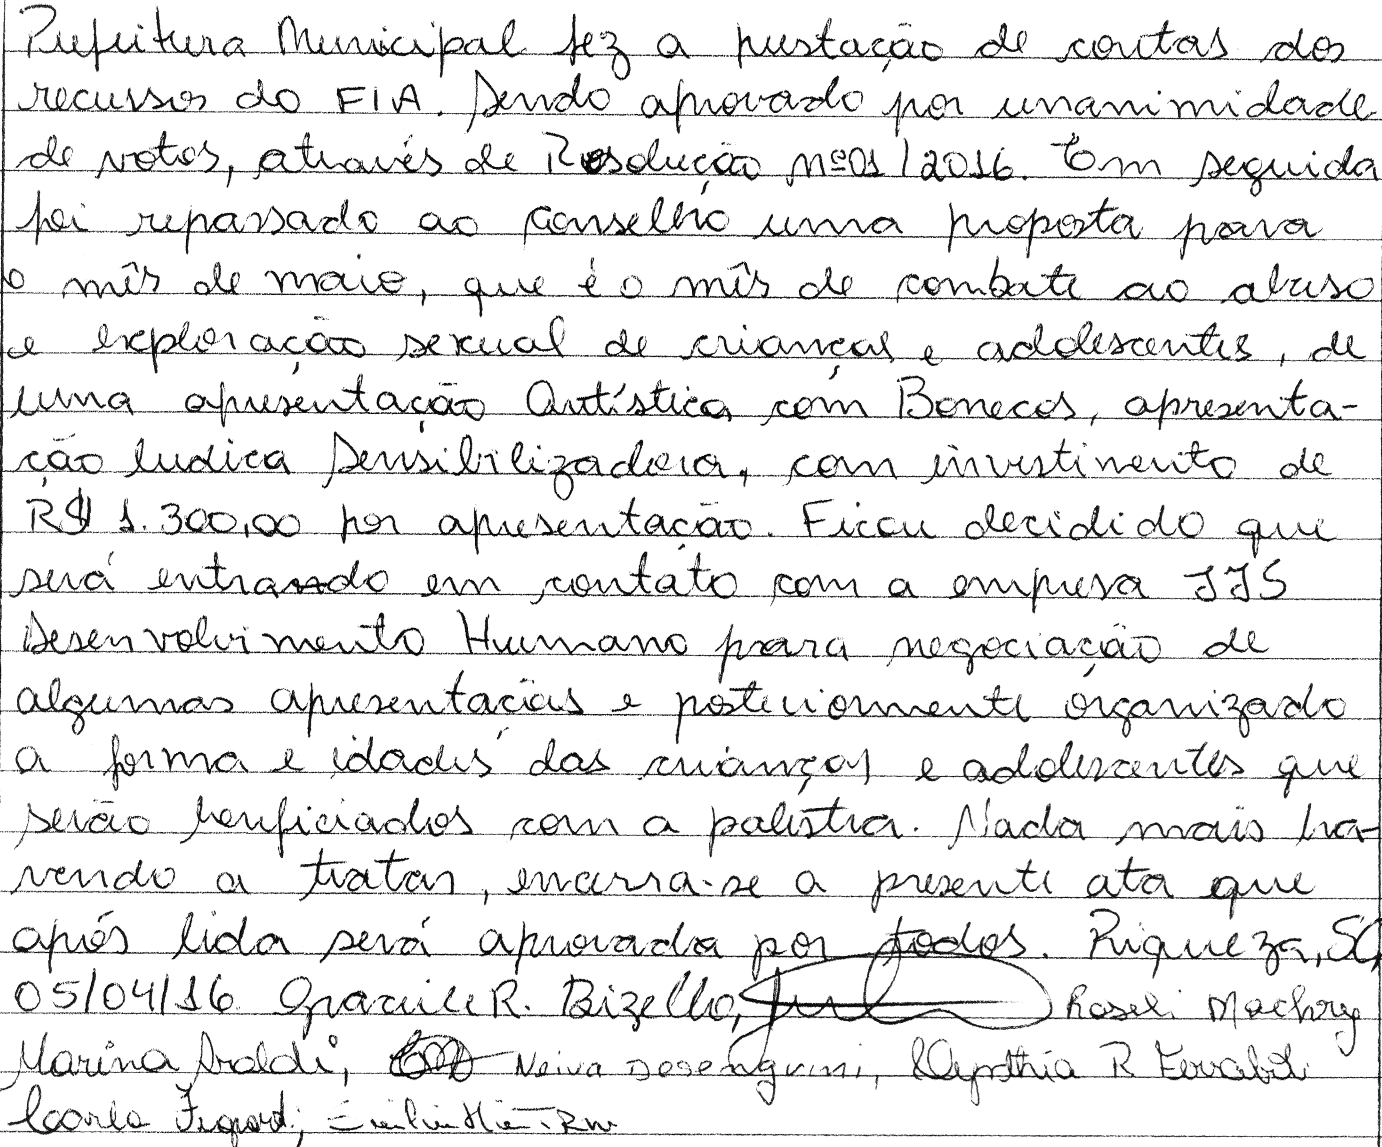 Prefeitura Municipal fez a prestação de contas dos
recursos do FIA. Sendo aprovado por unanimidade
de votos, através de Resolução nº 01/2016. Em seguida
foi repassado ao Conselho uma proposta para
o mês de maio, que é o mês de combate ao abuso
e exploração sexual de crianças e adolescentes, de
uma apresentação Artística com Bonecos, apresenta-
ção ludica Sensibilizadora, com investimento de
R$ 1.300,00 por apresentação. Ficou decidido que
será entrando em contato com a empresa JJS
Desenvolvimento Humano para negociação de
algumas apresentações e posteriormente organizado
a forma e idades das crianças e adolescentes que
serão beneficiados com a palestra. Nada mais ha-
vendo a tratar, encerra-se a presente ata que
após lida será aprovada por todos. Riqueza, SC,
05/04/16 R. Bizello, Roseli
Marina Araldi, Neiva R
Carla